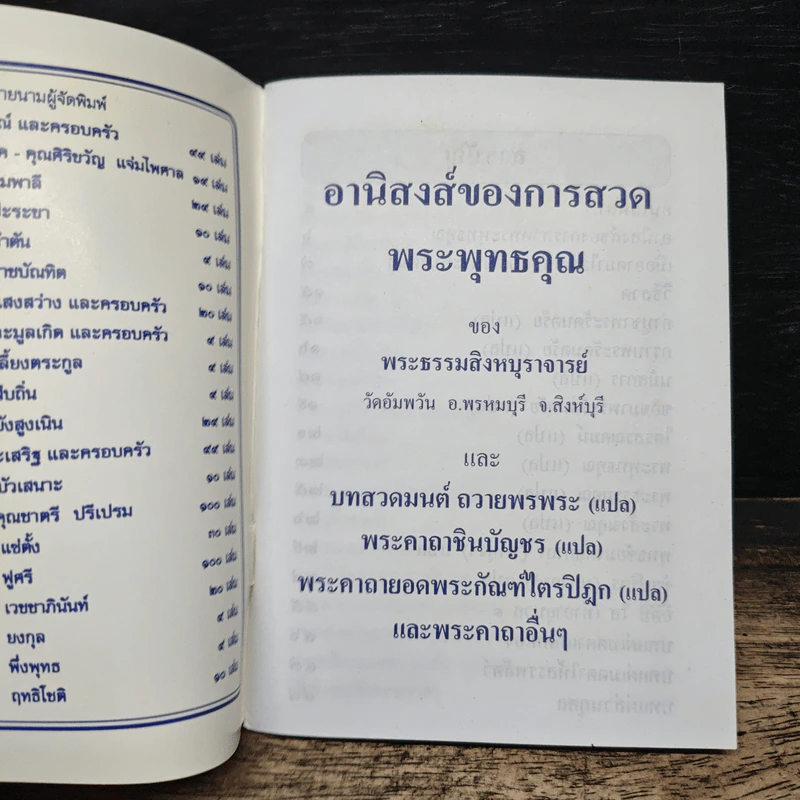 ายนามผู้จัดพิมพ์
ณ์ และครอบครัว ๔๙ เล่ม
ค - คุณศิริขวัญ แจ่มไพศาล ๑๙ เล่ม
มพาลี ๒๙ เล่ม
ปะระขา ๑๐ เล่ม
ำตัน ๙ เล่ม
าชบัณฑิต ๑๐ เล่ม
แสงสว่าง และครอบครัว ๒๐ เล่ม
ะมูลเกิด และครอบครัว ๙ เล่ม
ลี้ยงตระกูล ๙ เล่ม
สืบถิ่น ๙ เล่ม
บังสูงเนิน ๒๙ เล่ม
ะเสริฐ และครอบครัว ๔๙ เล่ม
บัวเสนาะ ๑๐ เล่ม
คุณชาตรี ปรีเปรม ๑๐๐ เล่ม
แซ่ตั้ง ๓๐ เล่ม
ฟูศรี ๑๐๐ เล่ม
เวชชาภินันท์ ๒๐ เล่ม
ยงกุล ๙ เล่ม
พึ่งพุทธ ๙ เล่ม
ฤทธิโชติ ๑๐ เล่ม
อานิสงส์ของการสวด
พระพุทธคุณ
ของ
พระธรรมสิงหบุราจารย์
วัดอัมพวัน อ.พรหมบุรี จ.สิงห์บุรี
และ
บทสวดมนต์ ถวายพรพระ (แปล)
พระคาถาชินบัญชร (แปล)
พระคาถายอดพระกัณฑ์ไตรปิฎก (แปล)
และพระคาถาอื่นๆ